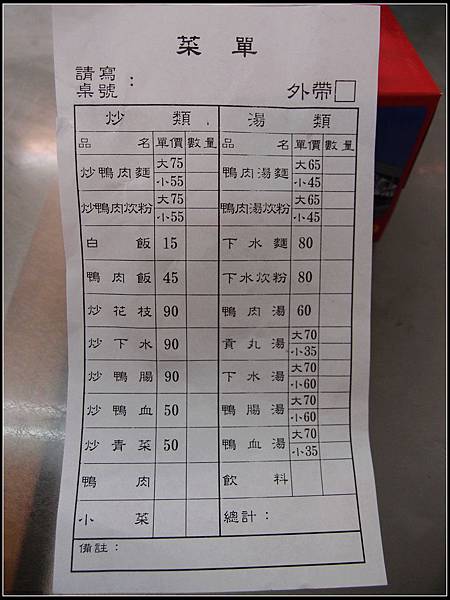 菜單
請寫桌號：
外帶□
炒類 湯類
品名 單價 數量 品名 單價 數量
炒鴨肉麵 大75 小55 鴨肉湯麵 大65 小45
炒鴨肉炊粉 大75 小55 鴨肉湯炊粉 大65 小45
白飯 15 下水麵 80
鴨肉飯 45 下水炊粉 80
炒花枝 90 鴨肉湯 60
炒下水 90 貢丸湯 大70 小35
炒鴨腸 90 下水湯 大70 小60
炒鴨血 50 鴨腸湯 大70 小60
炒青菜 50 鴨血湯 大70 小35
鴨肉 飲料
小菜 總計：
備註：